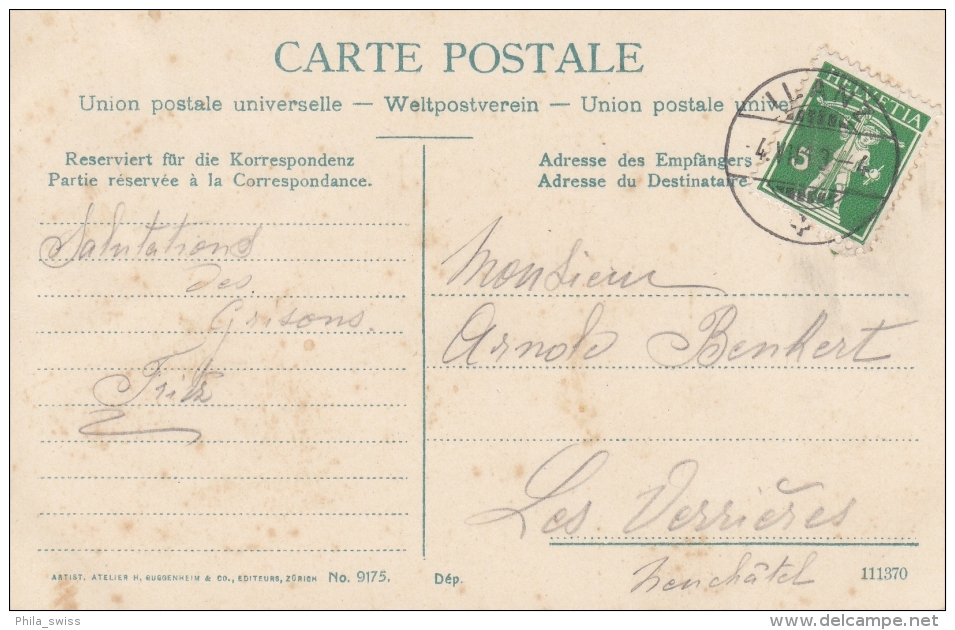 CARTE POSTALE
Union postale universelle — Weltpostverein — Union postale unive
Reserviert für die Korrespondenz
Partie réservée à la Correspondance.
Adresse des Empfängers
Adresse du Destinataire
HELVETIA
5
ILANZ
Salutations
des
Grisons.
Fritz
Monsieur
Arnold Benkert
Les Verrières
Neuchâtel
ARTIST. ATELIER H. GUGGENHEIM & CO., EDITEURS, ZÜRICH No. 9175.
Dép.
111370
Phila_swiss
www.delcampe.net